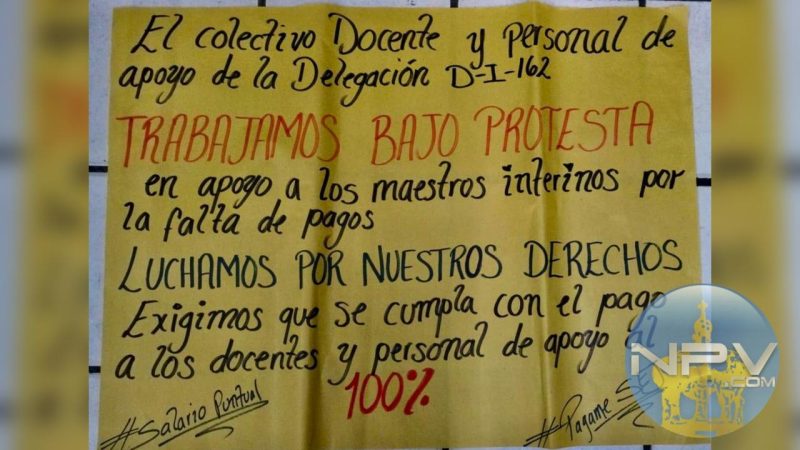 El colectivo Docente y personal de
apoyo de la Delegación D-I-162
TRABAJAMOS BAJO PROTESTA
en apoyo a los maestros interinos por
la falta de pagos
LUCHAMOS POR NUESTROS DERECHOS
Exigimos que se cumpla con el pago
a los docentes y personal de apoyo al
100%
#Salario Puntual
#Pagame
NPV
.COM